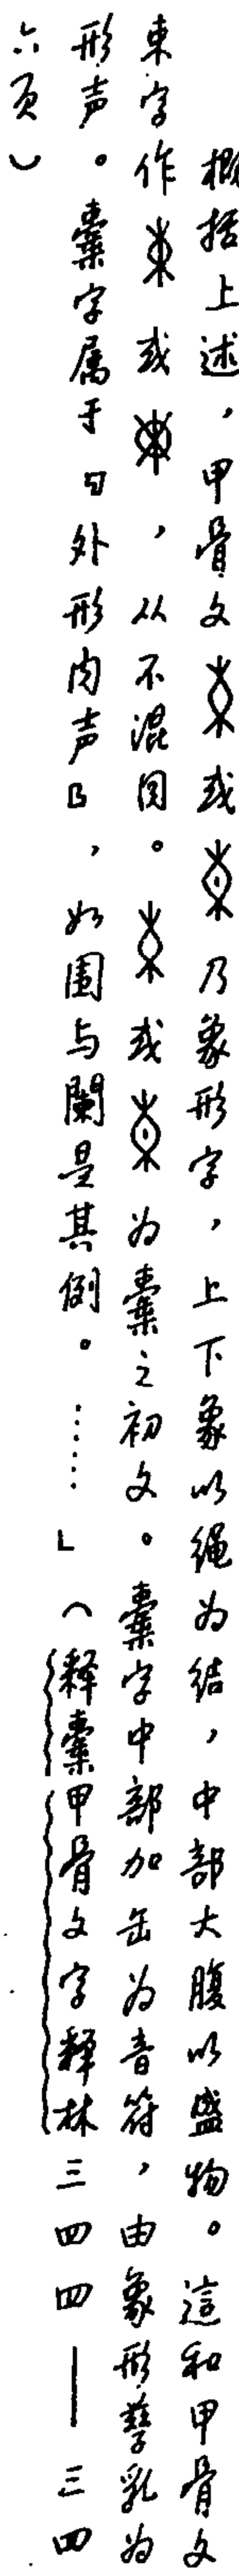 概括上述，甲骨文或乃象形字，上下象以绳为结，中部大腹以盛物。這和甲骨文
東字作或，从不混同。或为㯱之初文。㯱字中部加缶为音符，由象形孳乳为
形声。㯱字属于「外形内声」，如圍与闌是其例。……」（释㯱甲骨文字释林三四四——三四
六页）